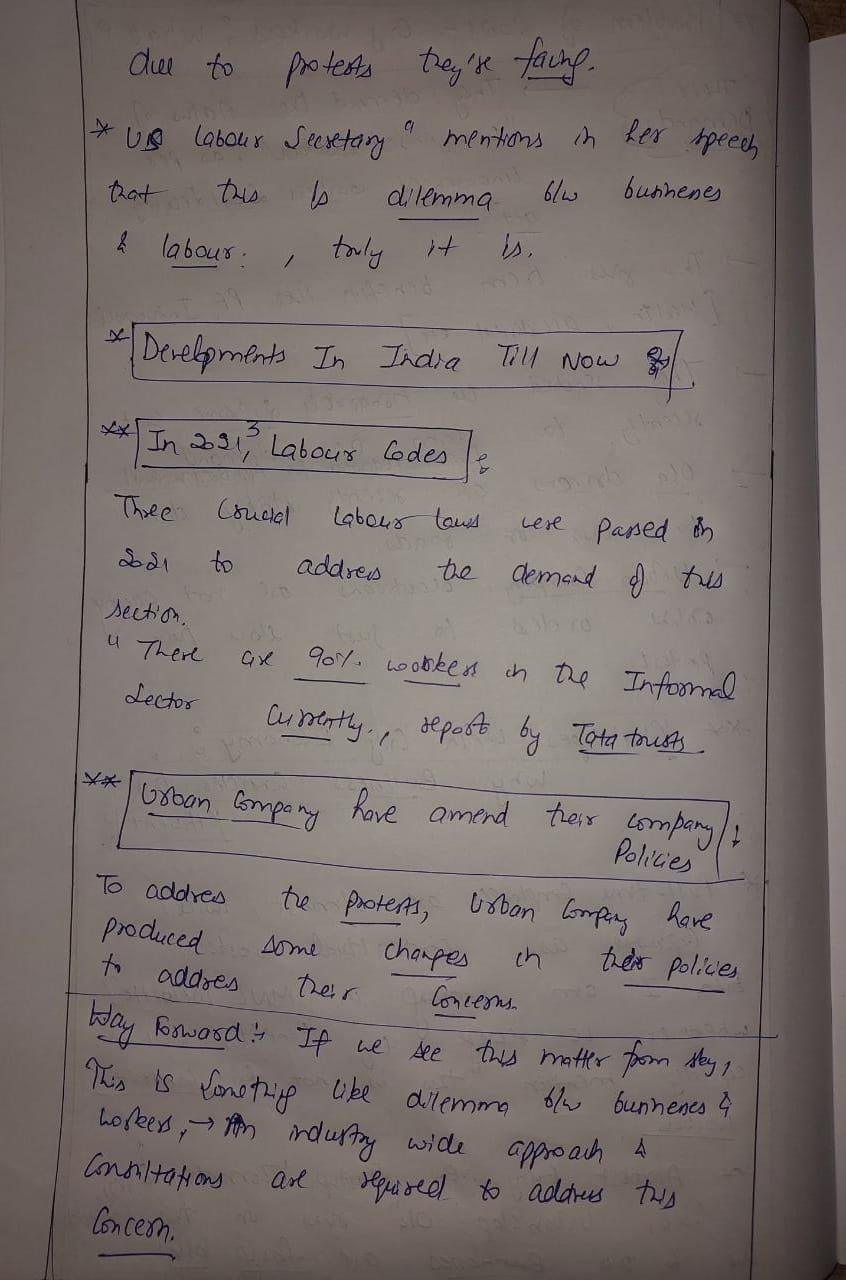 due to protests they're facing.
* US Labour Secretary " mentions in her speech
that this is dilemma b/w businenes
& labour. , truly it is.
* Developments In India Till Now
** In 2021, 3 Labour Codes :
Three Crucial labour laws were passed in
2021 to address the demand of this
section.
" There are 90% workers in the Informal
Sector Currently., report by Tata trusts.
** Urban Company have amend their company
Policies
To address the protests, Urban Company have
produced some changes in their policies
to address their Concerns.
Way Forward :- If we see this matter from sky,
This is something like dilemma b/w businenes &
workers, → An industry wide approach &
Consultations are required to address this
Concern.